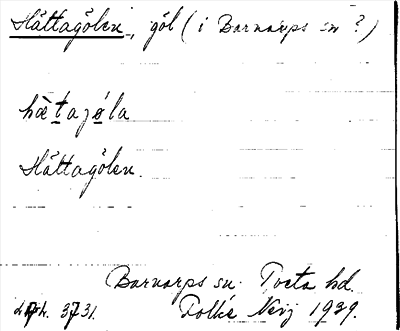 Håttagölen, göl (i Barnarps sn ?)
hætagöla
Håttagölen.
Barnarps sn. Tveta hd.
3731. Folke Neij 1939.